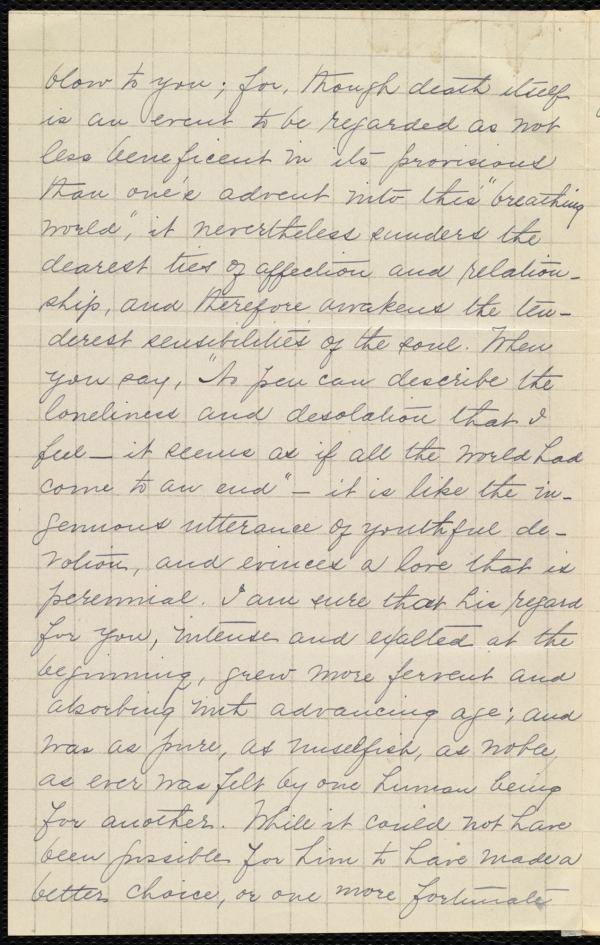 blow to you; for, though death itself
is an event to be regarded as not
less beneficent in its provisions
than one's advent into this "breathing
world", it nevertheless sunders the
dearest ties of affection and relation-
ship, and therefore awakens the ten-
derest sensibilities of the soul. When
you say, "No pen can describe the
loneliness and desolation that I
feel — it seems as if all the world had
come to an end" — it is like the in-
genuous utterance of youthful de-
votion, and evinces a love that is
perennial. I am sure that his regard
for you, intense and exalted at the
beginning, grew more fervent and
absorbing with advancing age; and
was as pure, as unselfish, as noble,
as ever was felt by one human being
for another. While it could not have
been possible for him to have made a
better choice, or one more fortunate